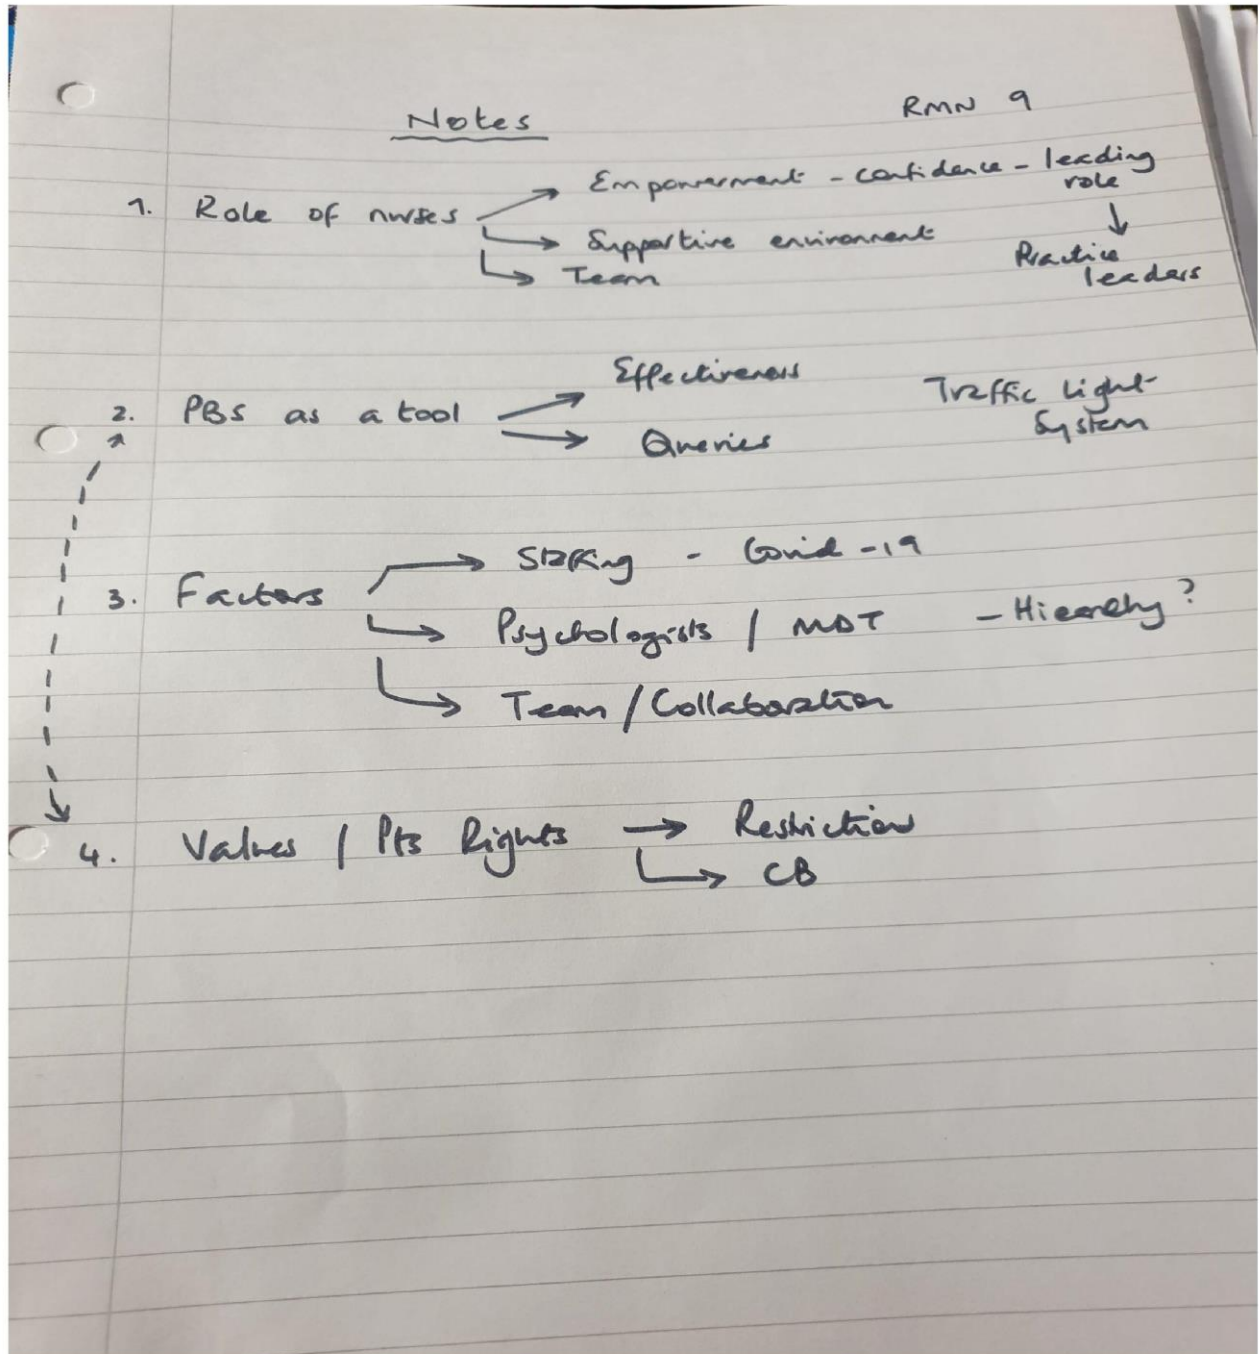 Notes
RMN 9
1. Role of nurses
Empowerment - confidence - leading
role
Practice
leaders
Supportive environment
Team
2. PBS as a tool
Effectiveness
Queries
Traffic Light
System
3. Factors
Staffing - Covid-19
Psychologists / MDT - Hierarchy?
Team / Collaboration
4. Values / Pts Rights
Restriction
CB